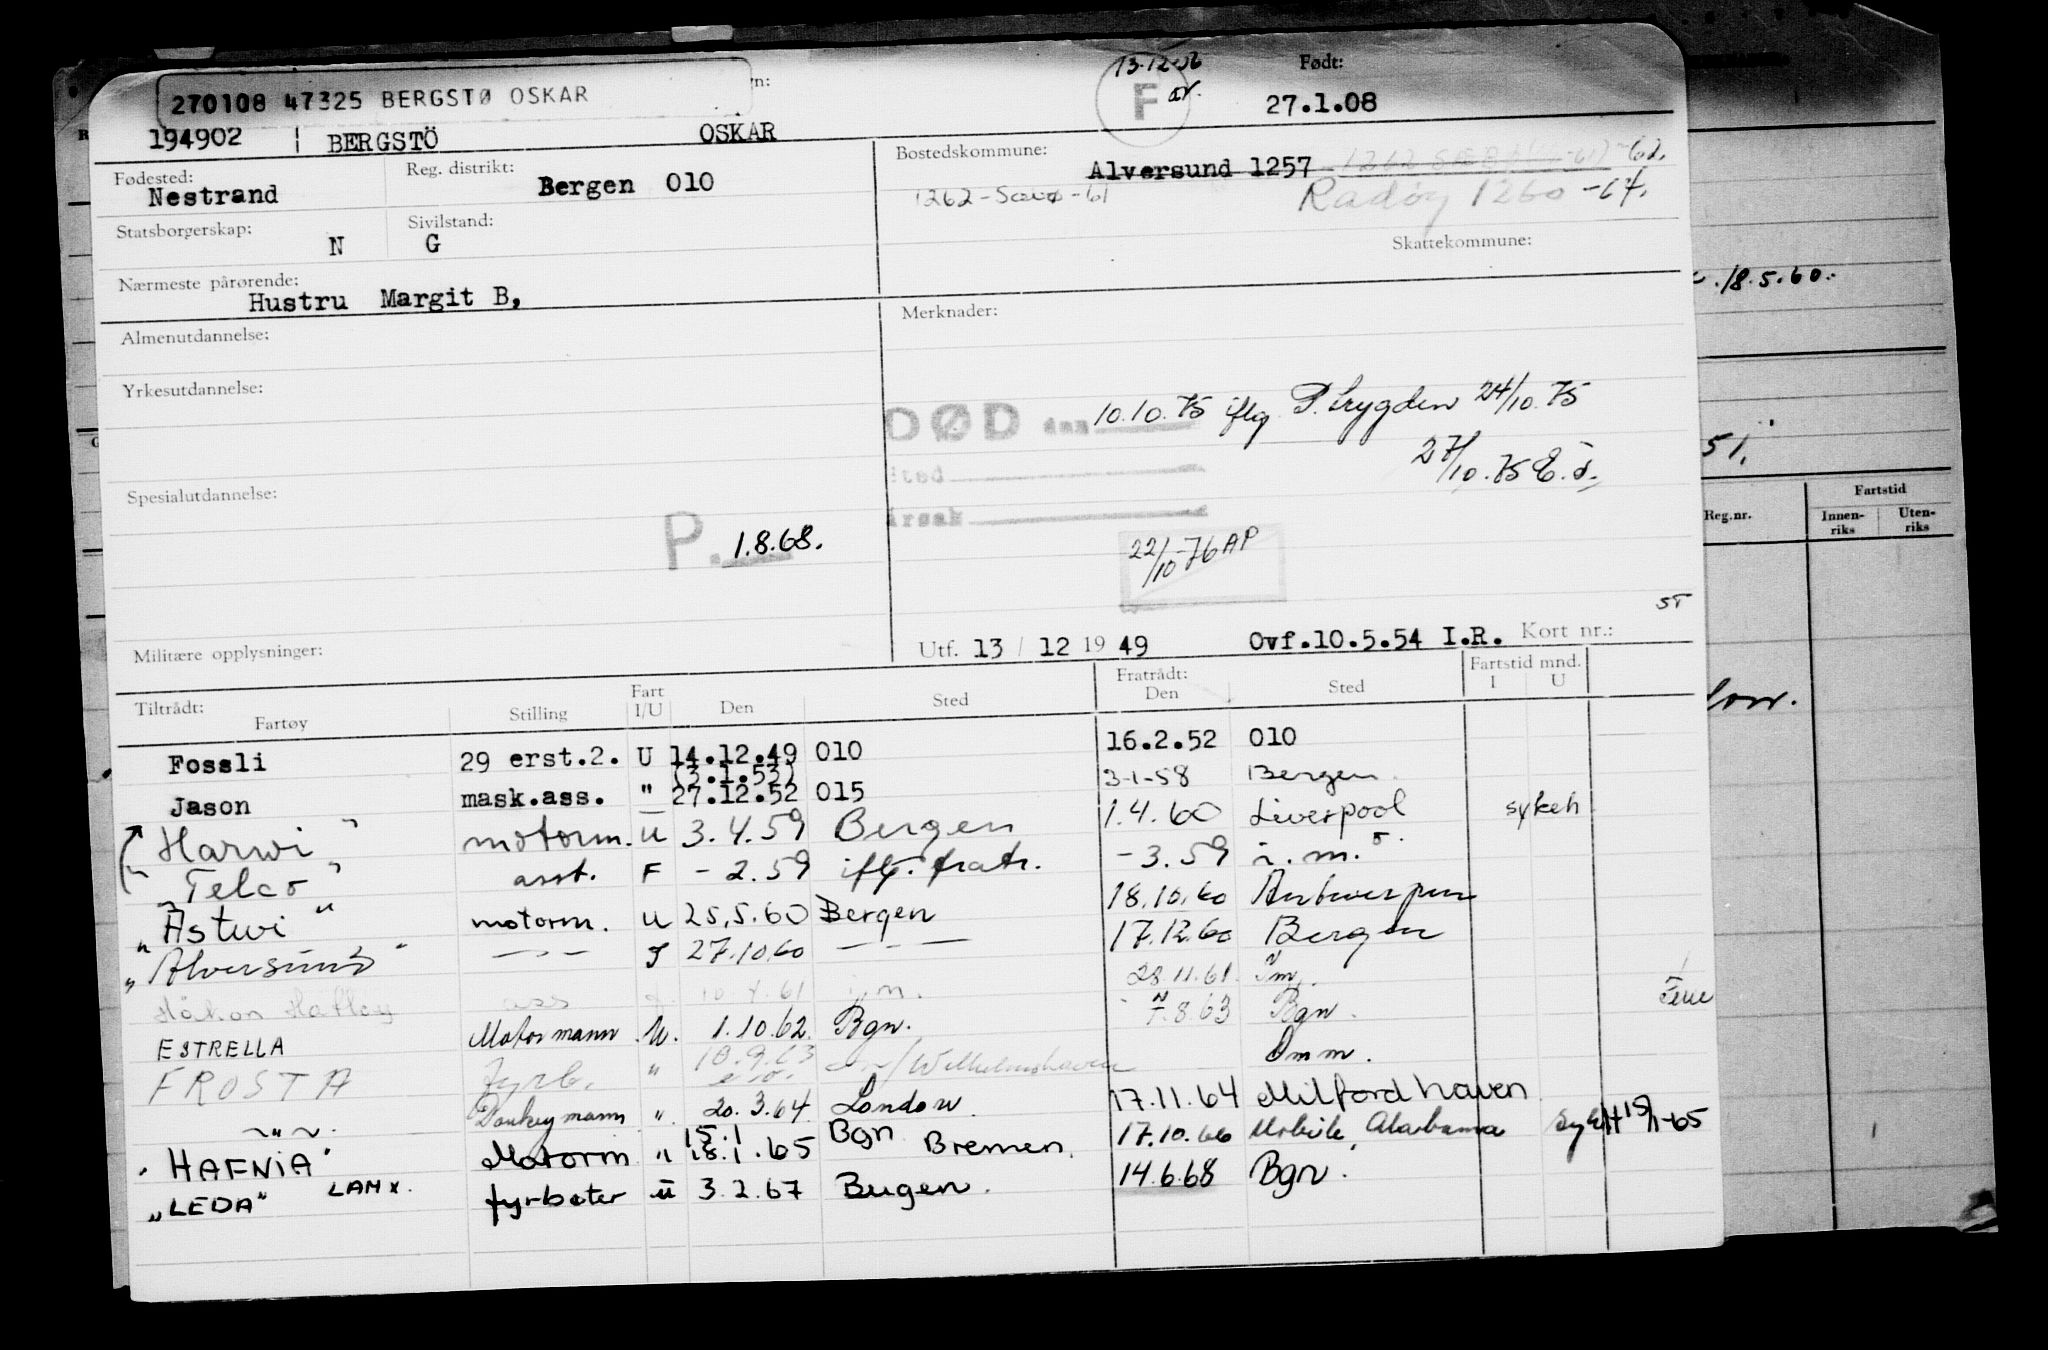 270108 47325 BERGSTØ OSKAR
13.12.56
F
Født:
27.1.08
194902 BERGSTÖ OSKAR
Fødested:
Nestrand
Reg. distrikt:
Bergen 010
Bostedskommune:
Alversund 1257
-62.
1262-Sæbø-61
Radöy 1260 -64.
Statsborgerskap:
N
Sivilstand:
G
Skattekommune:
Nærmeste pårørende:
Hustru Margit B,
Almenutdannelse:
Merknader:
.18.5.60.
Yrkesutdannelse:
DØD den 10.10.75 iflg P. trygden 24/10.75
27/10.75 E.S.
51.
Sted
Årsak
Spesialutdannelse:
P. 1.8.68.
22/10-76 AP
Reg.nr.
Fartstid
Innen-riks
Uten-riks
ST
Militære opplysninger:
Utf. 13 / 12 19 49
Ovf.10.5.54 I.R.
Kort nr.:
Tiltrådt:
Fartøy Stilling Fart I/U Den Sted Fratrådt: Den Sted Fartstid mnd. I U
Fossli 29 erst.2. U 14.12.49 010 16.2.52 010
(3.1.53)
Jason mask.ass. " 27.12.52 015 3-1-58 Bergen
Harwi " motorm. U 3.4.59 Bergen 1.4.60 Liverpool sykeh
"Telco" asst. F - 2.59 iflg. fratr. - 3.59 i.m.
"Astwi" motorm. U 25.5.60 Bergen 18.10.60 Antwerpen
"Alversund" —"— 27.10.60 —"— 17.12.60 Bergen
Håkon ass 61 28.11.61.
ESTRELLA Motormann U. 1.10.62. Bgn. 7.8.63 Bgn. Ferie
FROSTA fyrb. " 10.9.63 Wilhelmshaven Omm.
~"~. Donkeymann ". 20.3.64 London. 17.11.64 Milford haven
"HAFNIA" Motorm " 15.1 18.1.65 Bgn Bremen. 17.10.66 Mobile, Alabama Syk 15/1-65
"LEDA" LAM x. fyrbøter ü 3.2.67 Bergen. 14.6.68 Bgn.